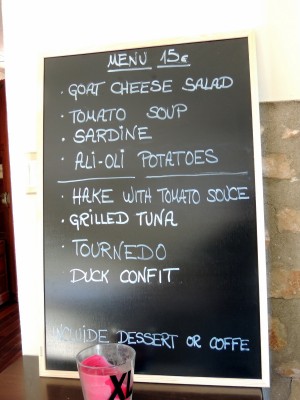 MENU 15€
· GOAT CHEESE SALAD
· TOMATO SOUP
· SARDINE
· ALI-OLI POTATOES
· HAKE WITH TOMATO SOUCE
· GRILLED TUNA
· TOURNEDO
DUCK CONFIT
INCLUIDE DESSERT OR COFFE
XL